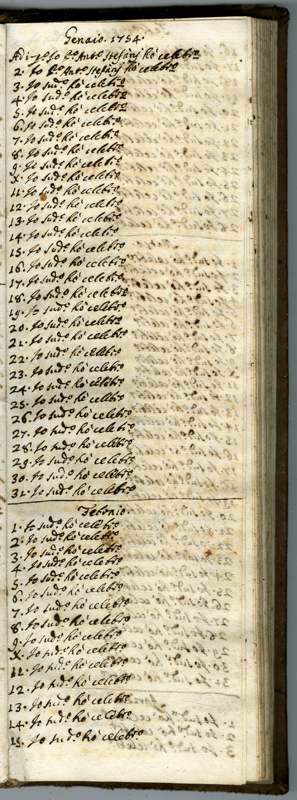 Genaio. 1754.
Adi p.o Io D. Ant.o Stefani hò celebr.o
2. Io D. Ant.o Stefani hò celebr.o
3. Io sud.o hò celebr.o
4. Io sud.o hò celebr.o
5. Io sud.o hò celebr.o
6. Io sud.o hò celebr.o
7. Io sud.o hò celebr.o
8. Io sud.o hò celebr.o
9. Io sud.o hò celebr.o
X. Io sud.o hò celebr.o
11. Io sud.o hò celebr.o
12. Io sud.o hò celebr.o
13. Io sud.o hò celebr.o
14. Io sud.o hò celebr.o
15. Io sud.o hò celebr.o
16. Io sud.o hò celebr.o
17. Io sud.o hò celebr.o
18. Io sud.o hò celebr.o
19. Io sud.o hò celebr.o
20. Io sud.o hò celebr.o
21. Io sud.o hò celebr.o
22. Io sud.o hò celebr.o
23. Io sud.o hò celebr.o
24. Io sud.o hò celebr.o
25. Io sud.o hò celebr.o
26. Io sud.o hò celebr.o
27. Io sud.o hò celebr.o
28. Io sud.o hò celebr.o
29. Io sud.o hò celebr.o
30. Io sud.o hò celebr.o
31. Io sud.o hò celebr.o
Febraio.
1. Io sud.o hò celebr.o
2. Io sud.o hò celebr.o
3. Io sud.o hò celebr.o
4. Io sud.o hò celebr.o
5. Io sud.o hò celebr.o
6. Io sud.o hò celebr.o
7. Io sud.o hò celebr.o
8. Io sud.o hò celebr.o
9. Io sud.o hò celebr.o
X. Io sud.o hò celebr.o
11. Io sud.o hò celebr.o
12. Io sud.o hò celebr.o
13. Io sud.o hò celebr.o
14. Io sud.o hò celebr.o
15. Io sud.o hò celebr.o